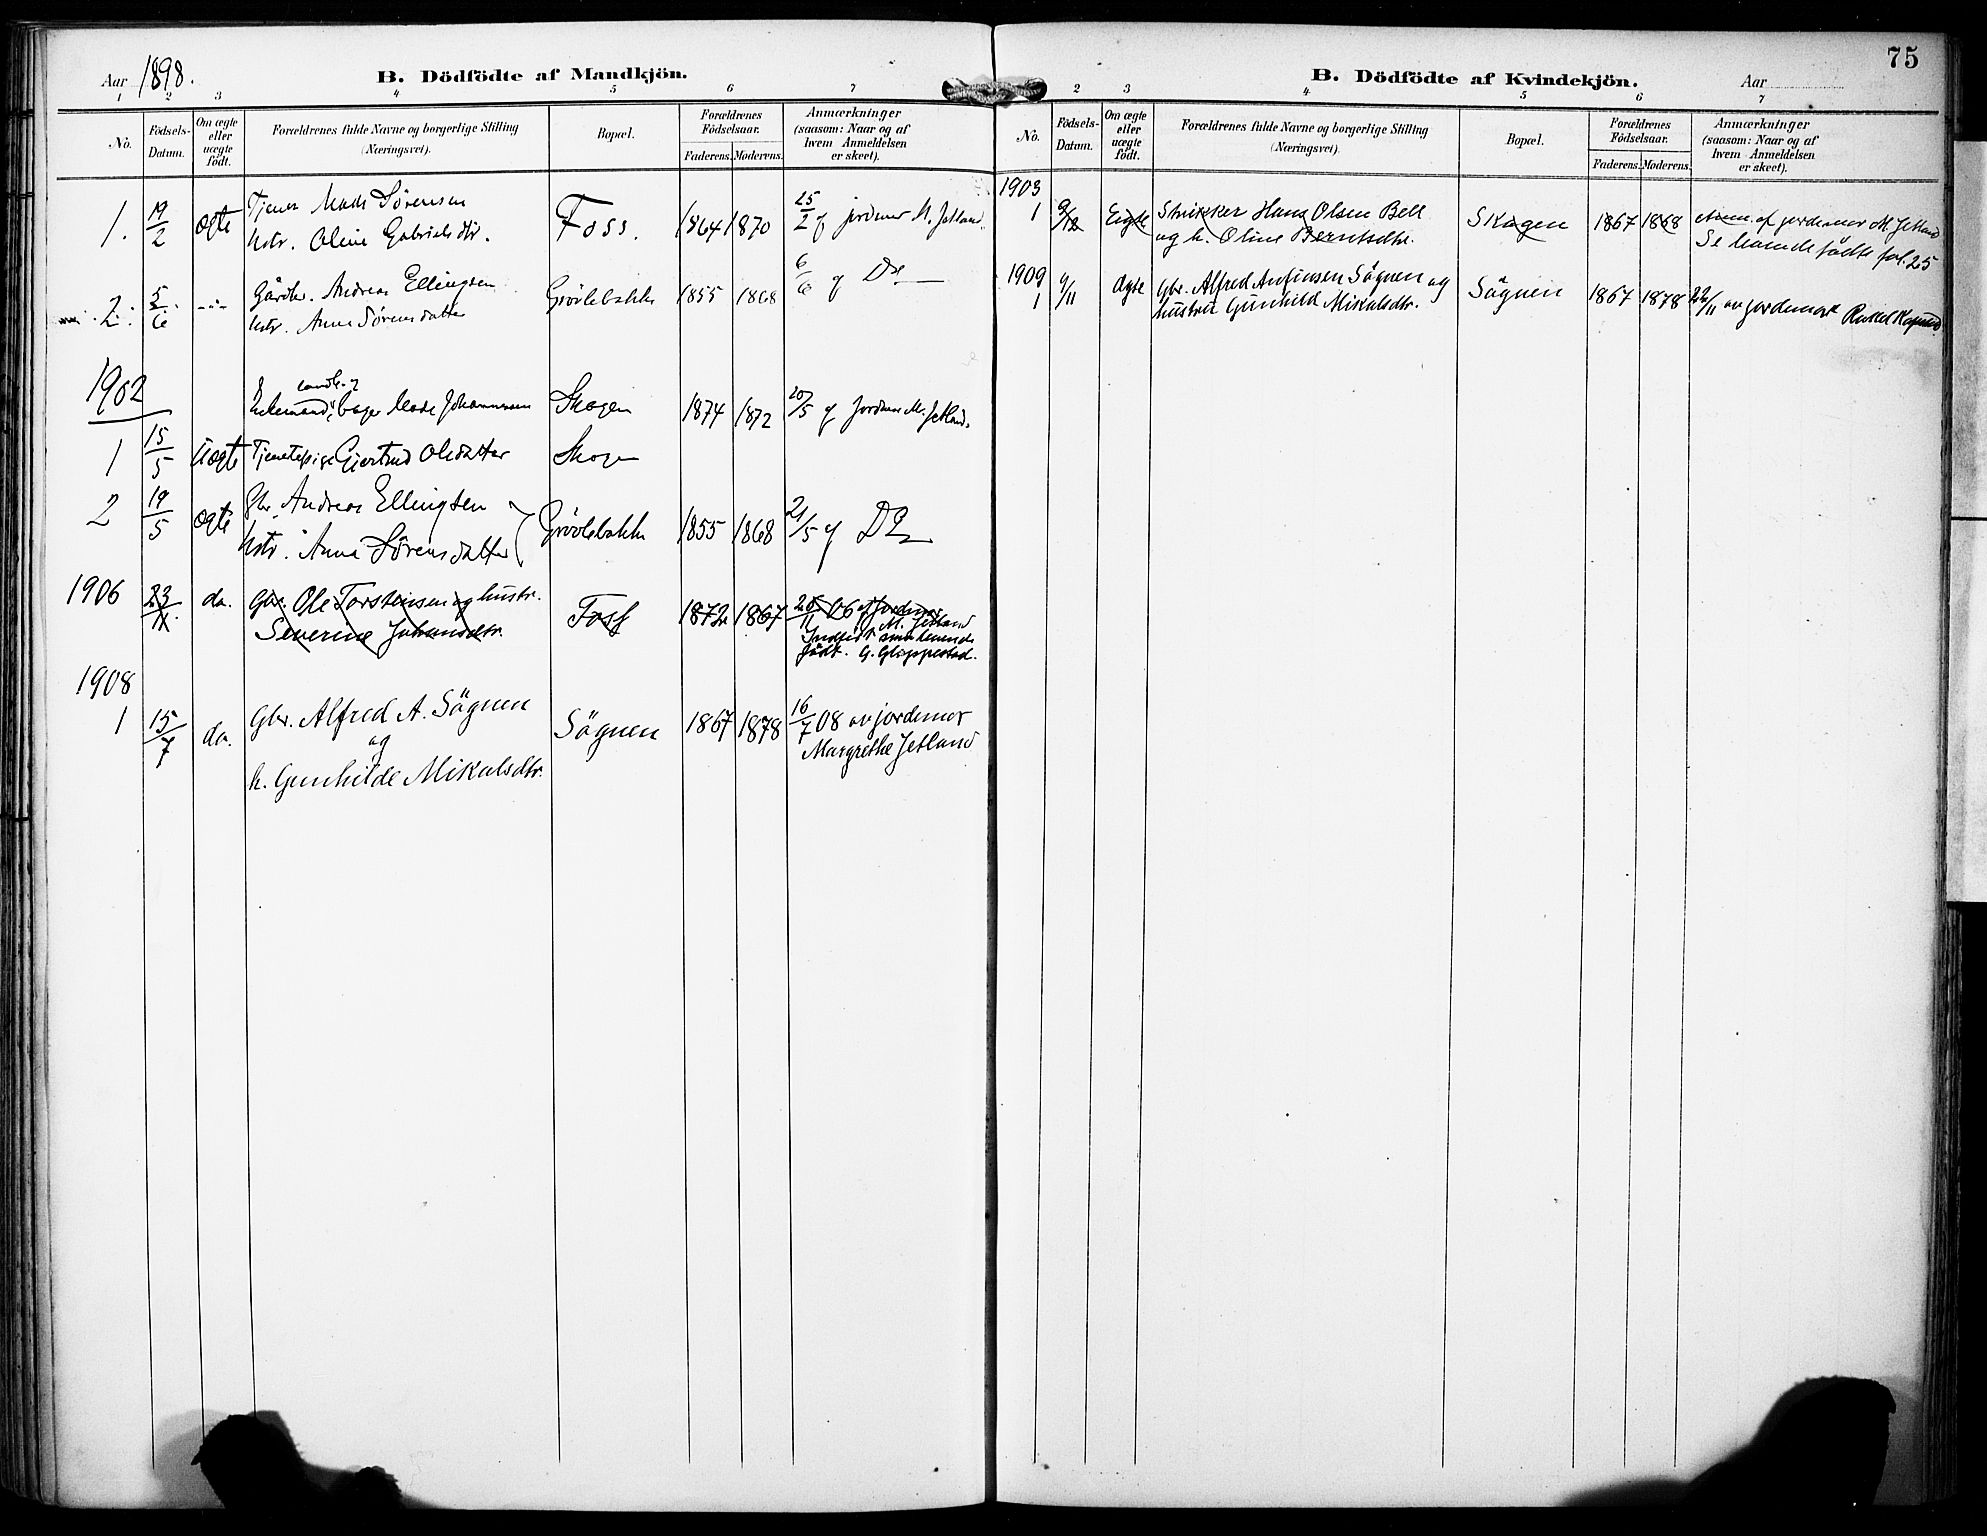 Aar 1898.
B. Dödfödte af Mandkjön.
1 2 3 4 5 6 7
No.
Födsels-
Datum.
Om ægte
eller
uægte
födt.
Forældrenes fulde Navne og borgerlige Stilling
(Næringsvei).
Bopæl.
Forældrenes
Födselsaar.
Faderens. Moderens.
Anmærkninger
(saasom: Naar og af
hvem Anmeldelsen
er skeet).
1. 19/2 ægte Tjener Mads Sørensen
hstr. Oline Gabrielsdtr.
Foss. 1864 1870 25/2 af jordmor M. Jetland.
2. 5/6 -"- Gårdbr. Andreas Ellingsen
hstr. Anna Sørensdatter
Grövlebakke 1855 1868 6/6 af Do
1902
Enkemand, landh. og bager Mads Johannessen Skogen 1874 1872 20/5 af Jordmor M. Jetland.
1 15/5 Uægte Tjenestepige Gjertrud Olsdatter Skogen
2 19/5 ægte Gbr. Andreas Ellingsen
hstr. Anna Sørensdatter
Grövlebakke 1855 1868 21/5 af Do
1906 23/11 do. Gbr. Ole Torstensen og hustr.
Severine Johansdtr.
Foss 1872 1867 06 af Jordmor
M. Jetland
Indført som levende
födt. G. Gloppestad.
1908
1 15/7 do. Gbr. Alfred A. Sögnen
og
h. Gunhilde Mikalsdtr.
Sögnen 1867 1878 16/7 08 av jordemor
Margrethe Jetland
75
B. Dödfödte af Kvindekjön.
Aar
2 3 4 5 6 7
No.
Födsels-
Datum.
Om ægte
eller
uægte
födt.
Forældrenes fulde Navne og borgerlige Stilling
(Næringsvei).
Bopæl.
Forældrenes
Födselsaar.
Faderens. Moderens.
Anmærkninger
(saasom: Naar og af
hvem Anmeldelsen
er skeet).
1903
1 9/12 Hans Olsen Bell
og h. Oline Berntsdtr.
Skogen 1867 1868 af jordemor M. Jetland
Se levende födte fol. 25
1909
1 9/11 Ægte Gbr. Alfred Anfinsen Sögnen og
hustru Gunhild Mikalsdtr.
Sögnen 1867 1878 22/11 av jordemor